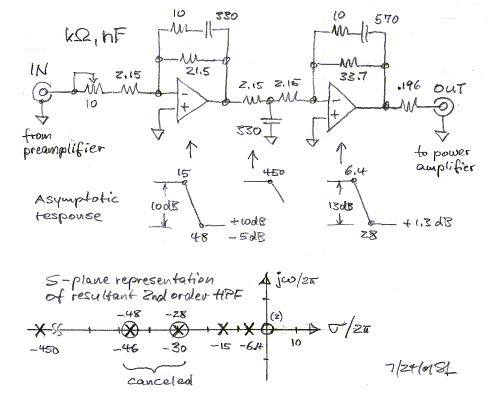 kΩ, nF
10
330
21.5
10
570
33.7
IN
2.15
10
2.15
2.15
330
.196
OUT
from
preamplifier
to power
amplifier
Asymptotic
response
15
10dB
48
+10dB
-5dB
450
6.4
13dB
28
+1.3dB
S-plane representation
of resultant 2nd order HPF
jω/2π
-48
-28
(2)
σ/2π
-450
-46
-30
-15
-6.4
10
canceled